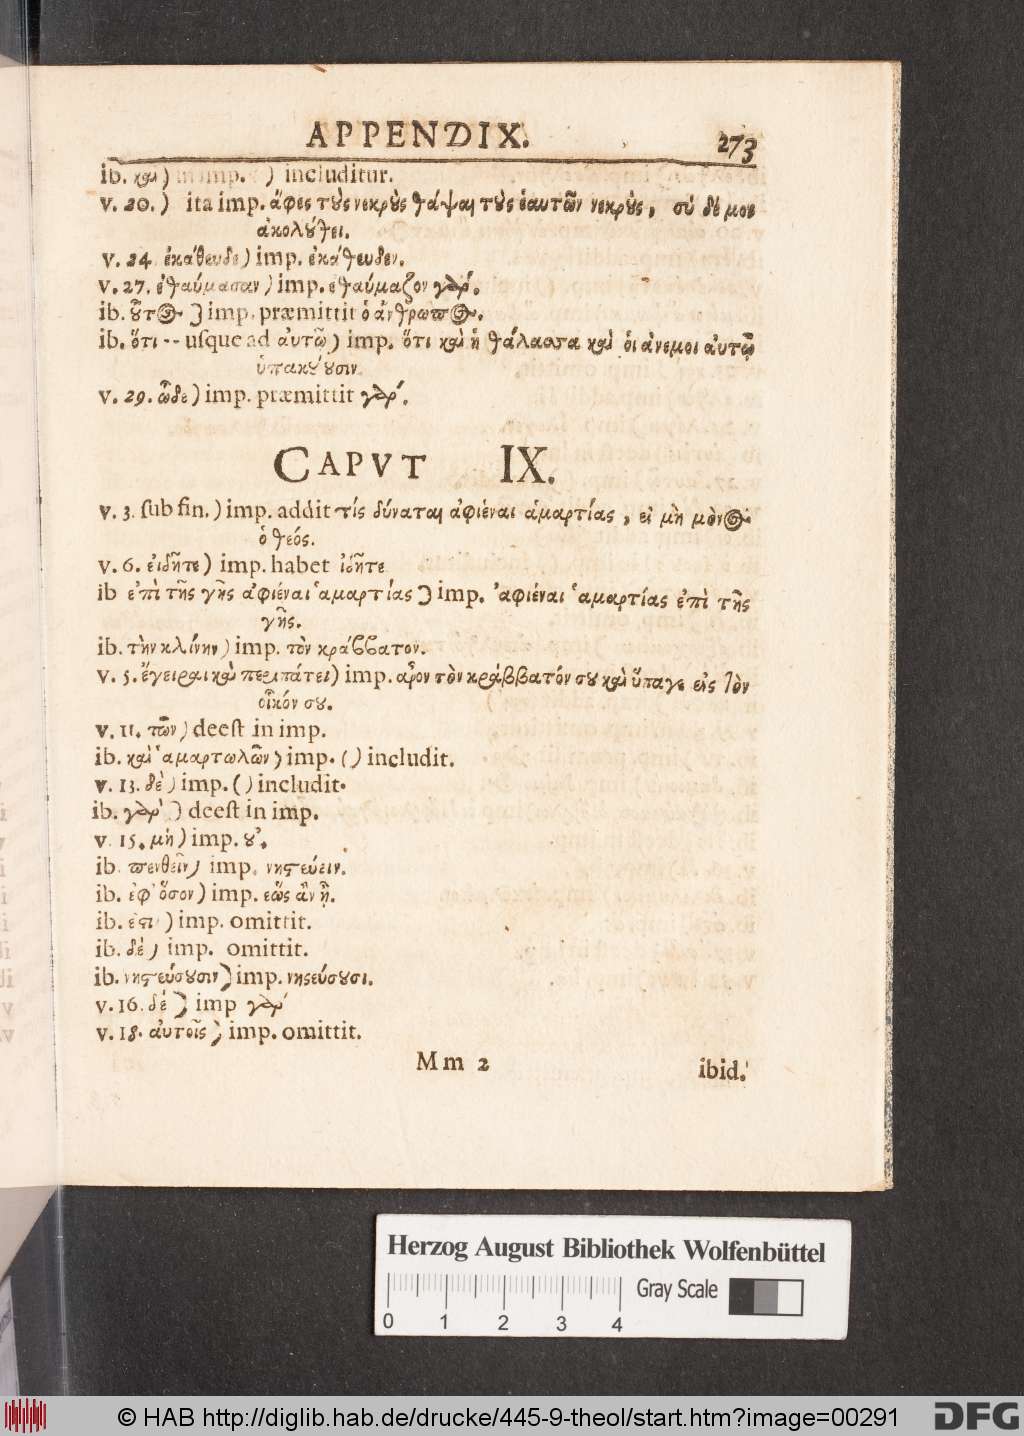 APPENDIX. 273
ib. καὶ) in imp. ( ) includitur.
v. 20.) ita imp. ἄφες τοὺς νεκροὺς θάψαι τοὺς ἑαυτῶν νεκροὺς, σύ δέ μου
ἀκολούθει.
v. 24. ἐκάθευδε) imp. ἐκάθευδεν.
v. 27. ἐθαύμασαν) imp. ἐθαύμαζον γὰρ.
ib. οὗτος) imp. præmittit ὁ ἄνθρωπος.
ib. ὅτι -- uſque ad αὐτῷ) imp. ὅτι καὶ ἡ θάλασσα καὶ οἱ ἄνεμοι αὐτῷ
ὑπακούουσιν.
v. 29. ὧδε) imp. præmittit γὰρ.
CAPVT IX.
v. 3. ſub fin.) imp. addit τίς δύναται ἀφιέναι ἁμαρτίας, εἰ μὴ μόνος
ὁ θεός.
v. 6. εἰδῆτε) imp. habet ἰδῆτε
ib ἐπὶ τῆς γῆς ἀφιέναι ἁμαρτίας) imp. ἀφιέναι ἁμαρτίας ἐπὶ τῆς
γῆς.
ib. τὴν κλίνην) imp. τὸν κράββατον.
v. 5. ἔγειραι καὶ περιπάτει) imp. ἆρον τὸν κράββατόν σου καὶ ὕπαγε εἰς τὸν
οἶκόν σου.
v. 11. τῶν) deeſt in imp.
ib. καὶ ἁμαρτωλῶν) imp. ( ) includit.
v. 13. δὲ) imp. ( ) includit.
ib. γὰρ) deeſt in imp.
v. 15. μὴ) imp. οὐ.
ib. πενθεῖν) imp. νηστεύειν.
ib. ἐφ' ὅσον) imp. εως ἂν ᾖ.
ib. ἐπ') imp. omittit.
ib. δέ) imp. omittit.
ib. νηστεύσουσιν) imp. νηστεύσουσι.
v. 16. δέ) imp γὰρ
v. 18. αὐτοῖς) imp. omittit.
Mm 2 ibid.
Herzog August Bibliothek Wolfenbüttel
0 1 2 3 4 Gray Scale
© HAB http://diglib.hab.de/drucke/445-9-theol/start.htm?image=00291 DFG